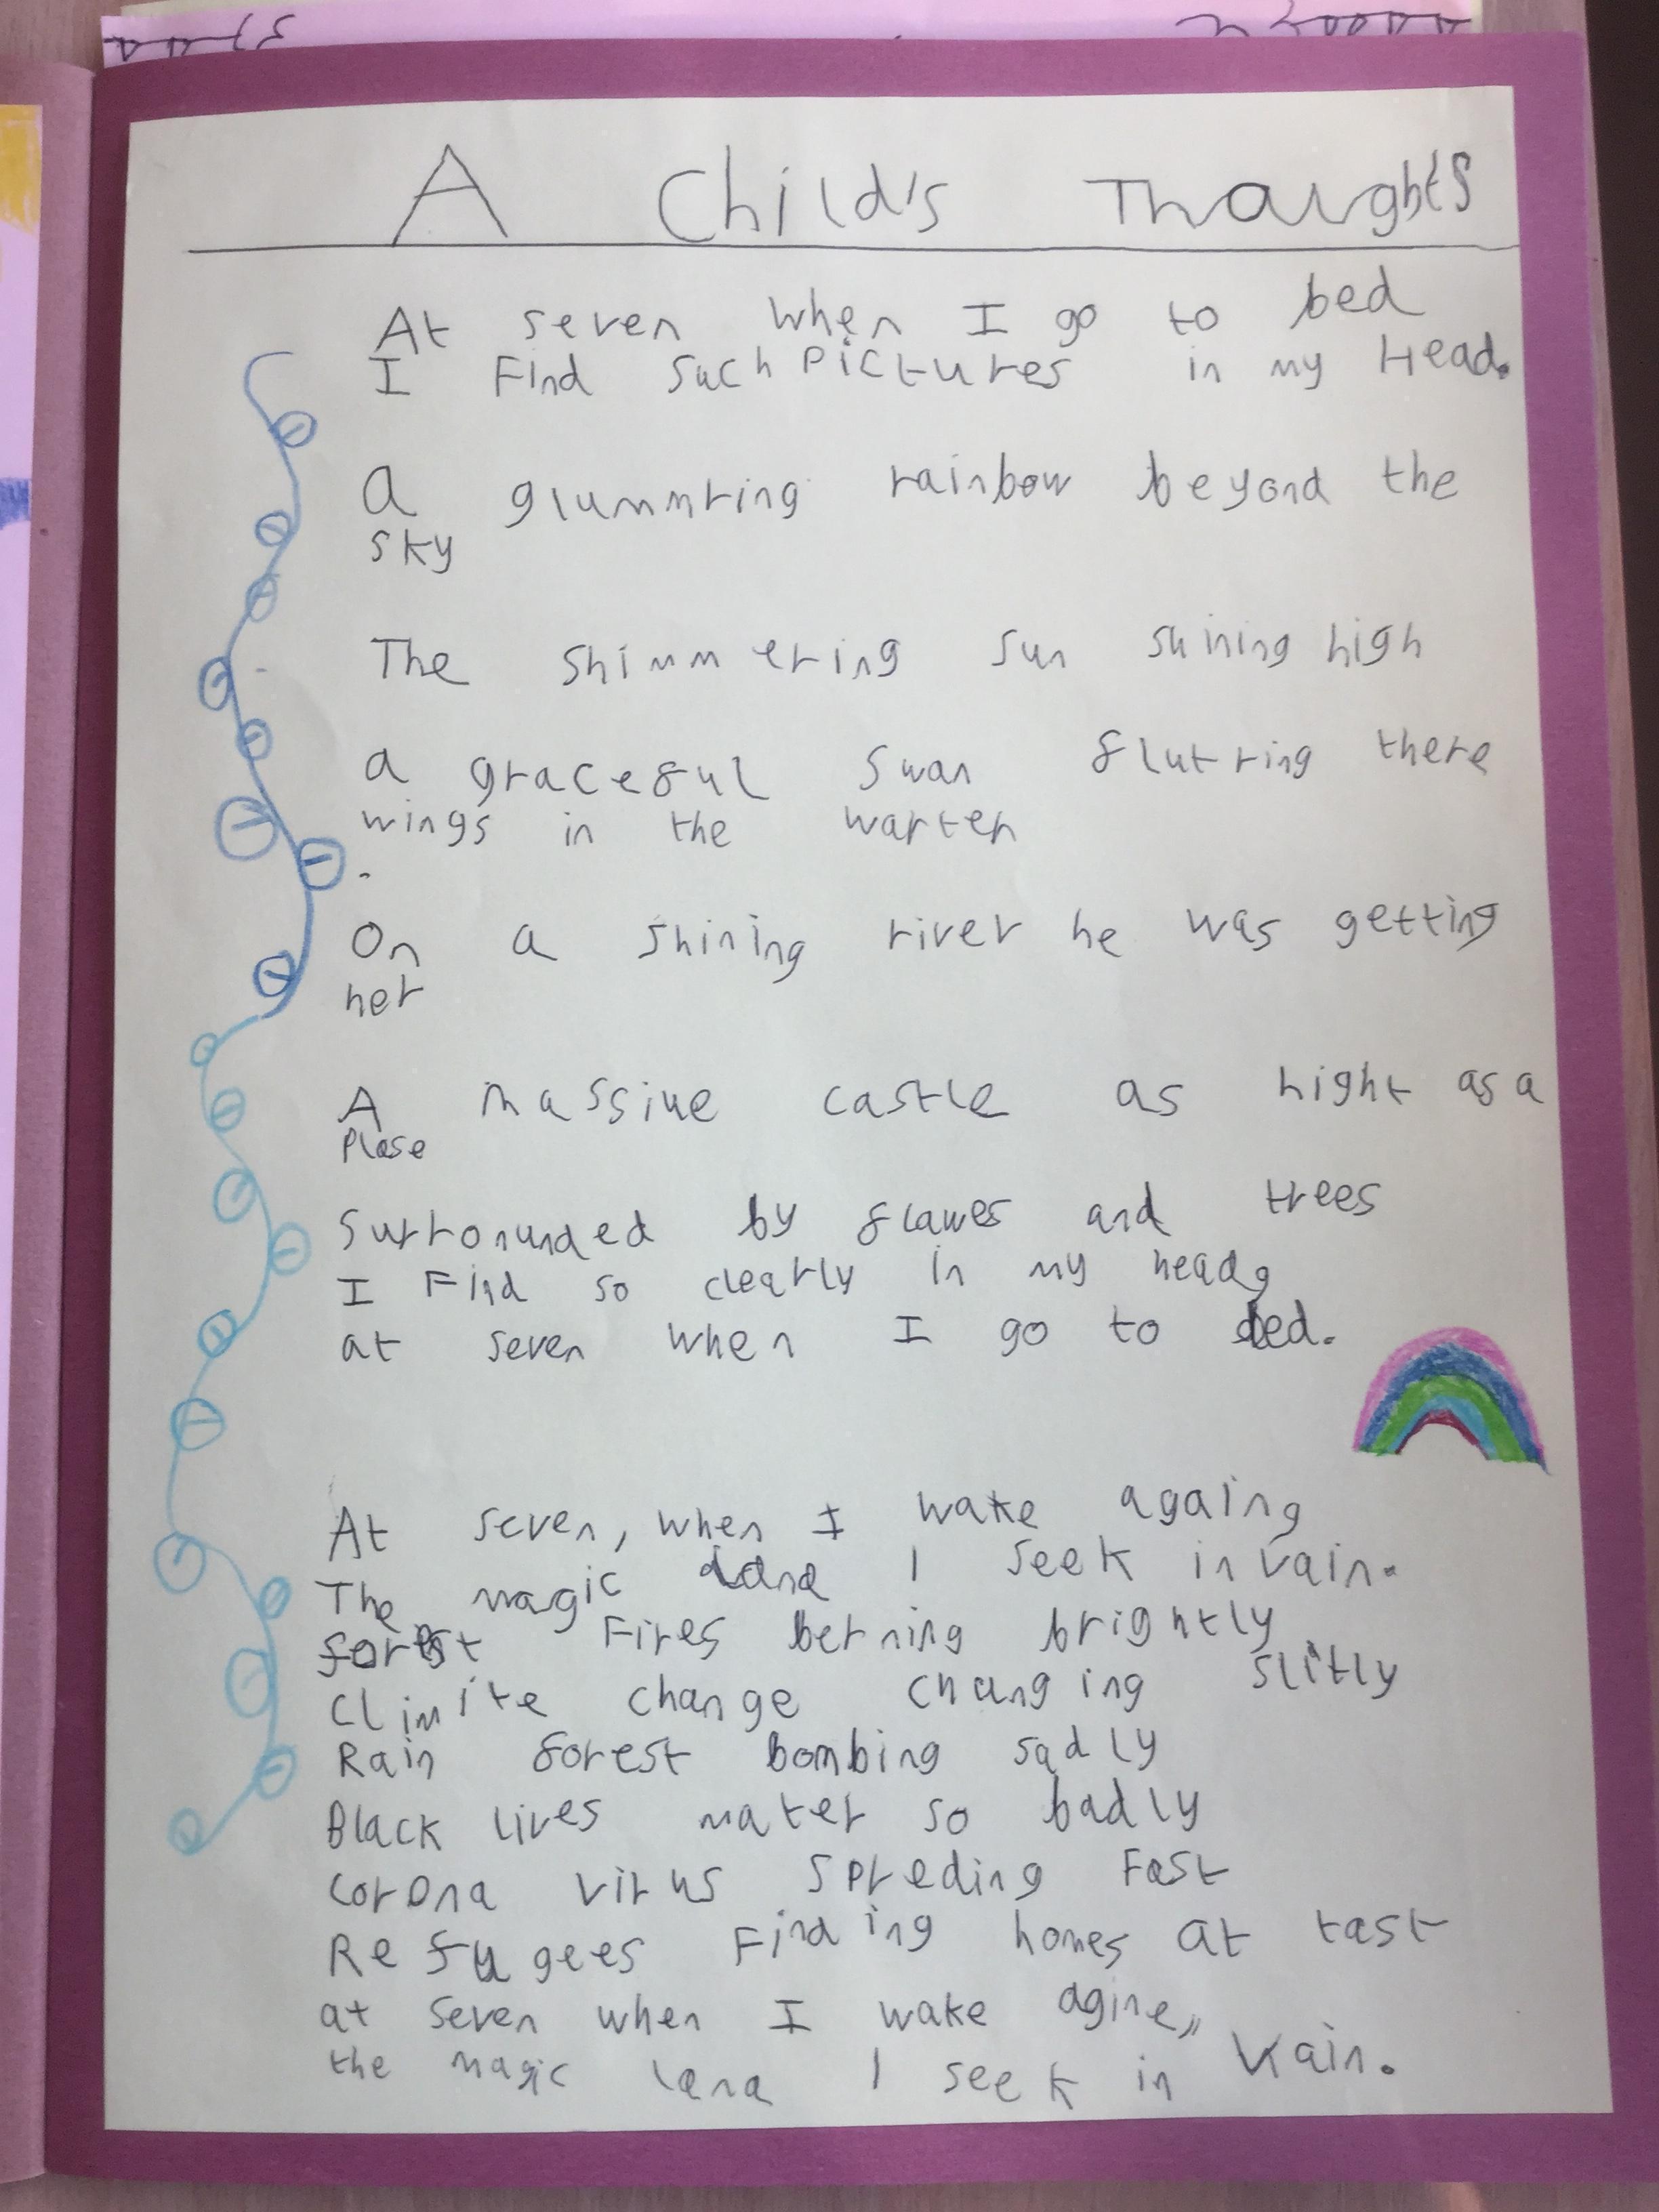 A Child's Thoughts
At seven when I go to bed
I Find such Pictures in my Head.
a glummring rainbow beyond the
sky
The shimmering sun shining high
a graceful swan fluttring there
wings in the warter
On a shining river he was getting
her
A massive castle as hight as a
Plase
Surronunded by flawes and trees
I Find so clearly in my head,
at seven when I go to bed.
At seven, when I wake againg
The magic land I seek in vain.
forest Fires berning brightly
climite change changing slitly
Rain forest bombing sadly
Black lives mater so badly
corona virus spreding Fast
Refugees Finding homes at last
at seven when I wake agine,,
the magic land I seek in vain.